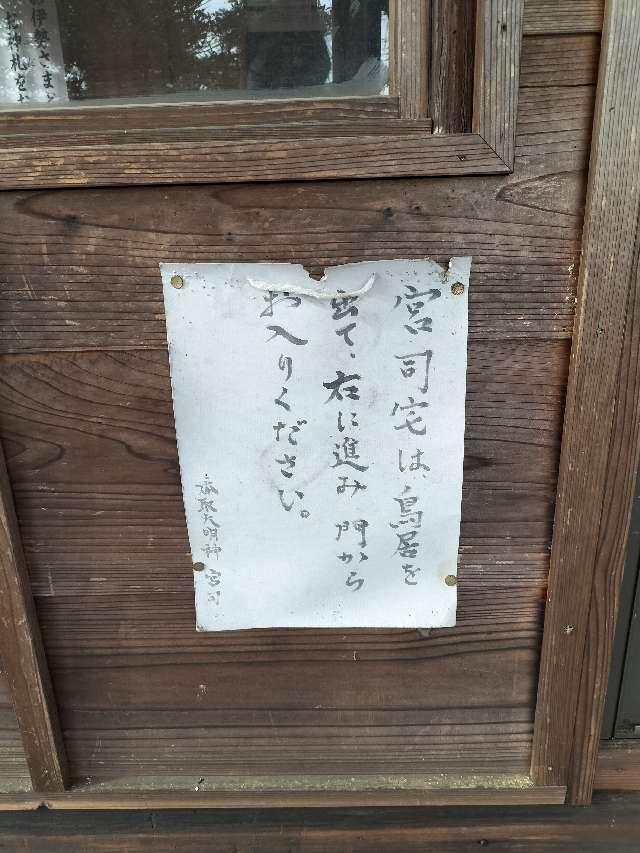 宮司宅は、鳥居を
出て、右に進み、門から
お入りください。
香取大明神 宮司
伊勢さま
お神札を